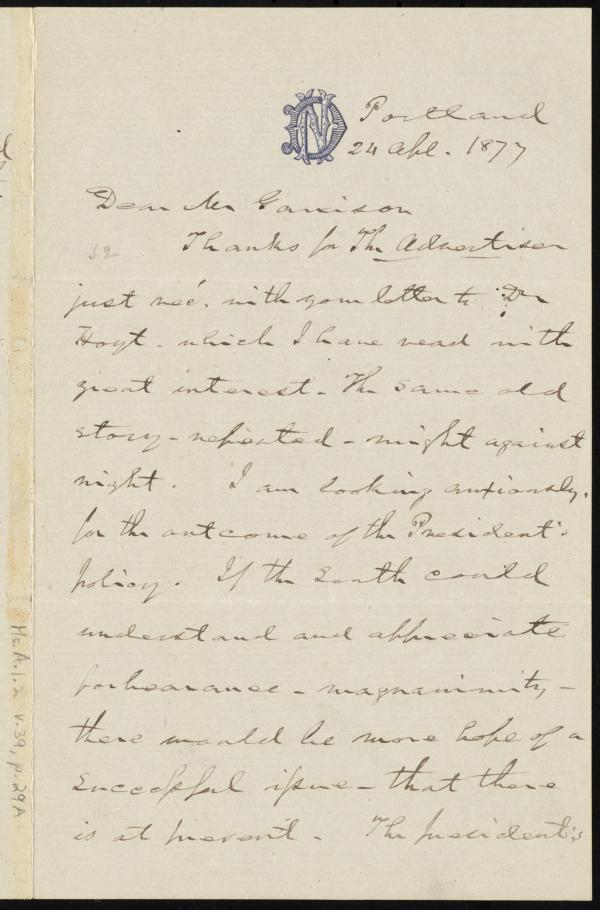 DN
Portland
24 Apl. 1877
Dear Mr Garrison
Thanks for The Advertiser
52
just rec'd. with your letter to Dr
Hoyt - which I have read with
great interest - The same old
story - repeated - might against
right. I am looking anxiously,
for the outcome of the President's
policy. If the South could
understand and appreciate
forbearance - magnanimity -
there would be more hope of a
successful issue - that there
is at present. The president's
Ms.A.1.2 v.39, p.29A